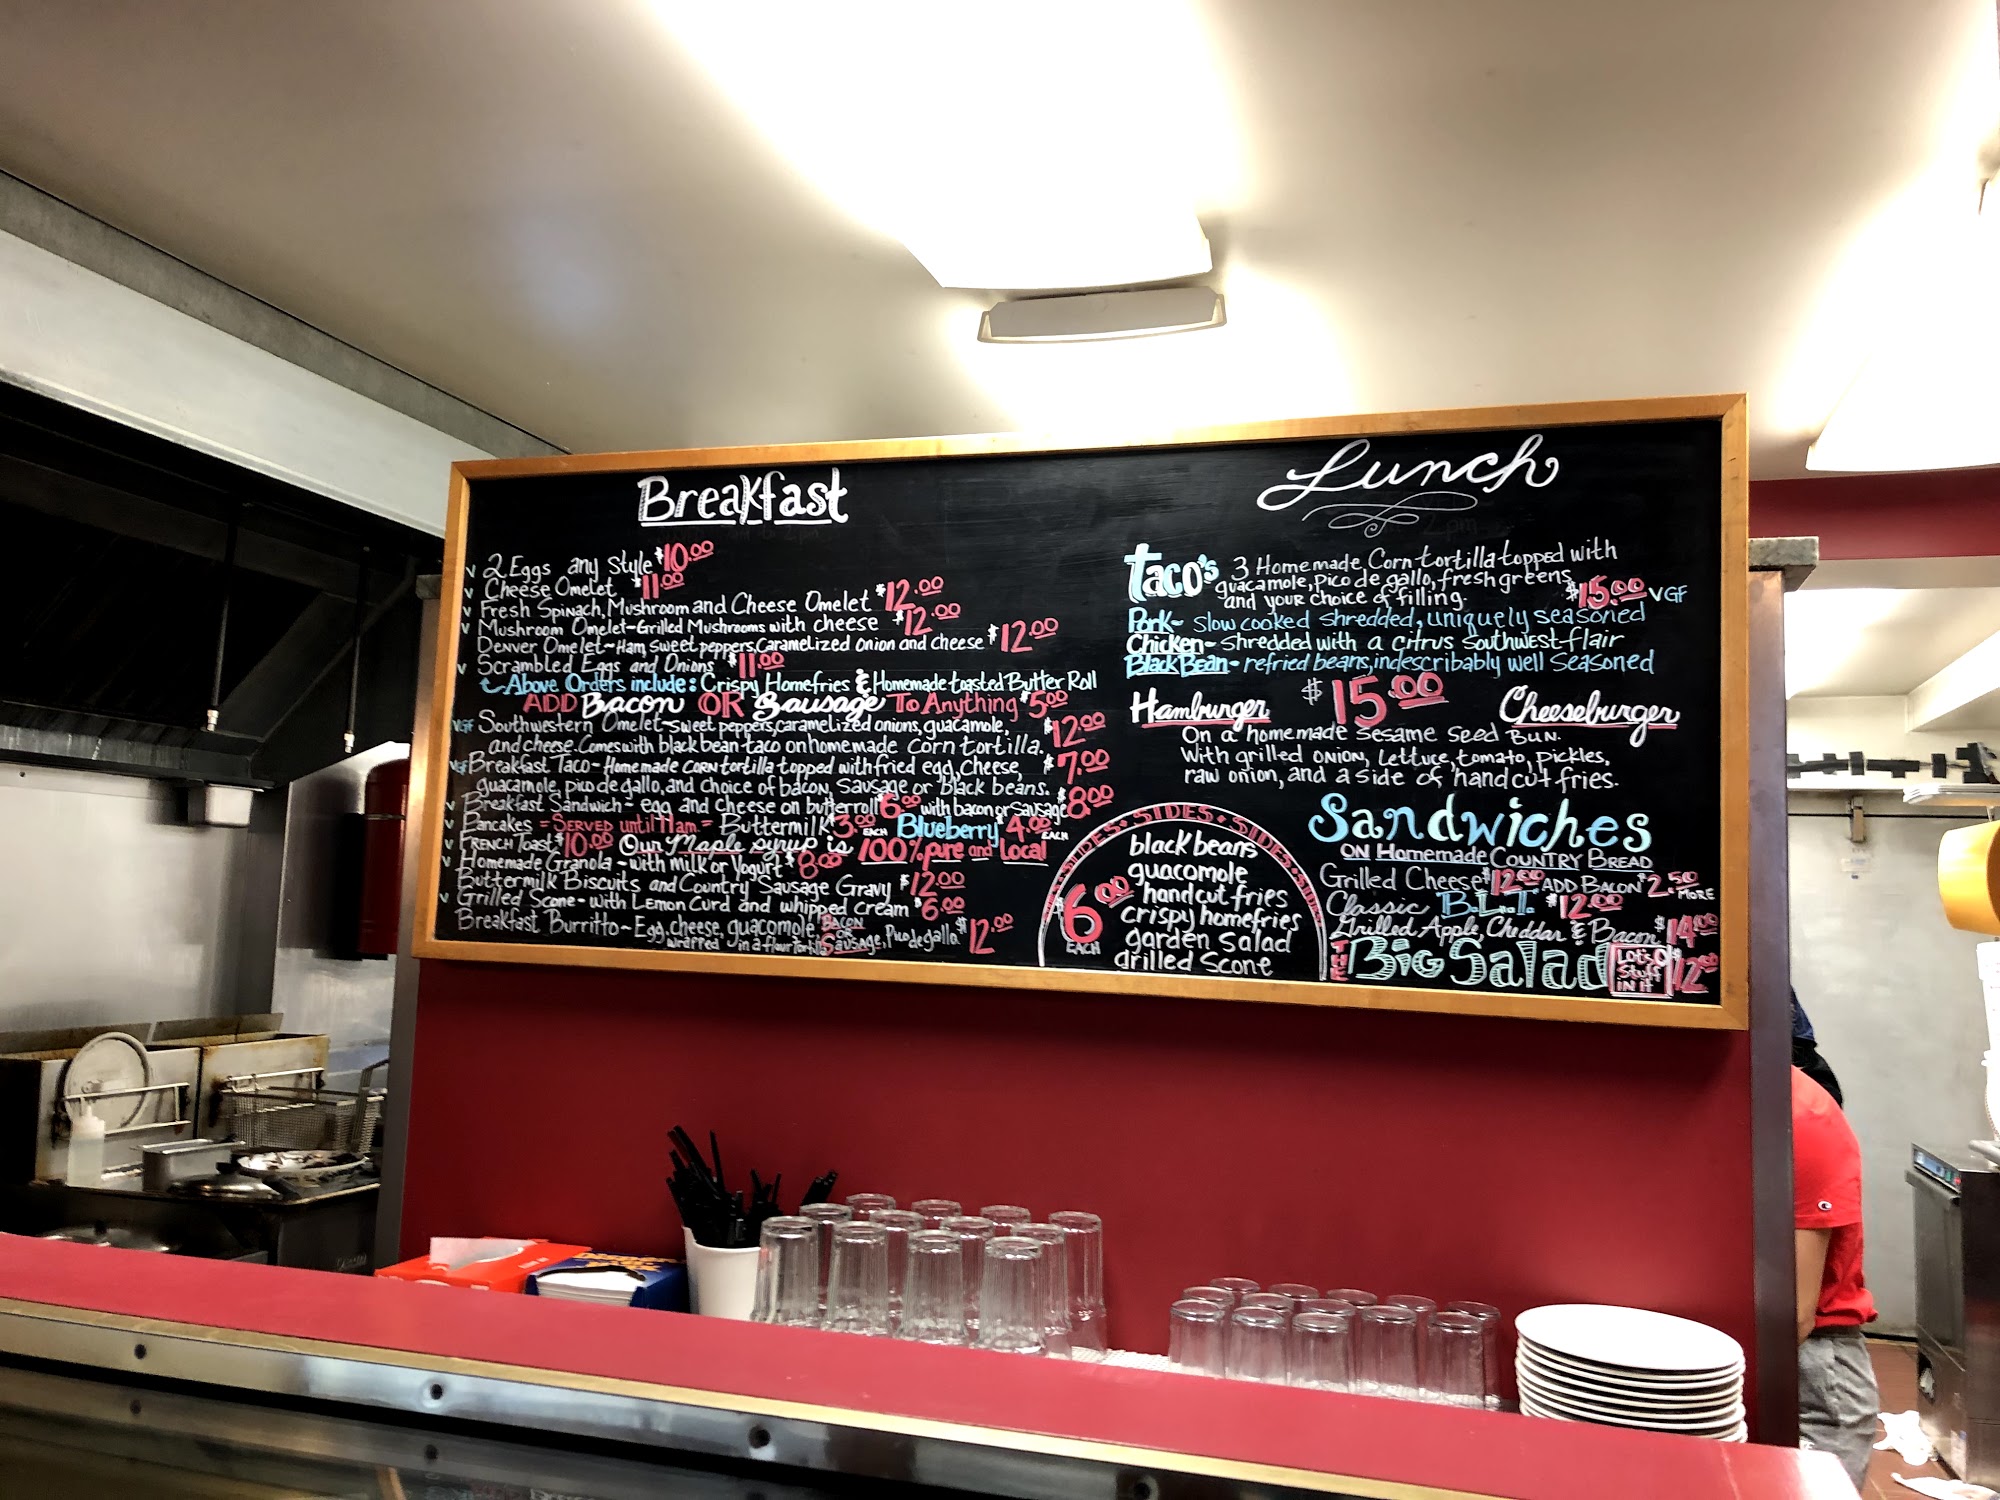 Breakfast
V 2 Eggs any Style $10.00
V Cheese Omelet $11.00
V Fresh Spinach, Mushroom and Cheese Omelet $12.00
V Mushroom Omelet-Grilled Mushrooms with cheese $12.00
Denver Omelet~Ham, sweet peppers, Caramelized onion and cheese $12.00
V Scrambled Eggs and Onions $11.00
Above Orders include: Crispy Homefries & Homemade toasted Butter Roll
ADD Bacon OR Sausage To Anything $5.00
VGF Southwestern Omelet~sweet peppers, caramelized onions, guacamole, $12.00
and cheese. Comes with black bean taco on homemade corn tortilla.
VGF Breakfast Taco~Homemade corn tortilla topped with fried egg, cheese, $7.00
guacamole, pico de gallo, and choice of bacon, sausage or black beans.
V Breakfast Sandwich~egg and cheese on butter roll 6.00 with bacon or sausage $8.00
V Pancakes = SERVED until 11am. = Buttermilk 3.00 EACH Blueberry 4.00 EACH
V FRENCH Toast $10.00 Our Maple syrup is 100% pure and Local
V Homemade Granola~with Milk or Yogurt $8.00
Buttermilk Biscuits and Country Sausage Gravy $12.00
V Grilled Scone~with Lemon Curd and whipped cream $6.00
Breakfast Burritto~Egg, cheese, guacomole, BACON OR SAUSAGE, Pico de gallo. $12.00
wrapped in a flour tortilla
Lunch
Taco's 3 Homemade Corn-tortilla topped with
guacamole, pico de gallo, fresh greens
and your choice of filling. $15.00 VGF
Pork~ Slow cooked shredded, uniquely seasoned
Chicken~ shredded with a citrus southwest-flair
Black Bean~ refried beans, indescribably well seasoned
Hamburger $15.00 Cheeseburger
On a homemade sesame seed Bun.
With grilled onion, lettuce, tomato, pickles,
raw onion, and a side of hand cut fries.
SIDES • SIDES • SIDES • SIDES
$6.00 EACH
black beans
guacomole
hand cut fries
crispy homefries
garden salad
grilled scone
Sandwiches
ON Homemade COUNTRY BREAD
Grilled Cheese $12.00 ADD BACON $2.50 MORE
Classic B.L.T. $12.00
Grilled Apple, Cheddar & Bacon $14.00
THE BIG Salad LOT'SO Stuff IN it $12.00